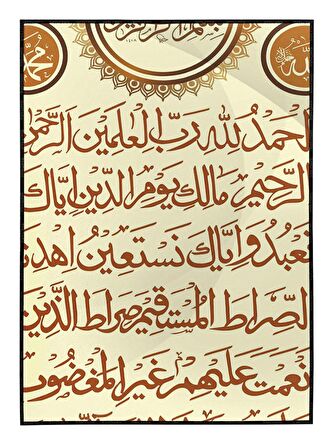 محمد
الله
الحمد لله رب العلمين الرحمن
الرحيم مالك يوم الدين اياك
نعبد و اياك نستعين اهدنا
الصراط المستقيم صراط الذين
نعمت عليهم غير المغضوب